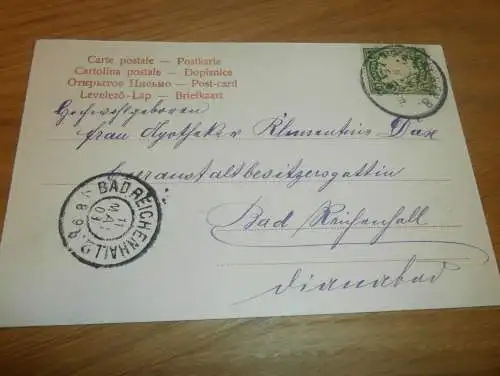 Carte postale — Postkarte
Cartolina postale — Dopisnice
Открытое Письмо — Post-card
Levelező-Lap — Briefkaart
Hochwohlgeboren
Frau Apotheker Klementine Dax
Kuranstaltbesitzersgattin
Bad Reichenhall
Dianabad
BAD REICHENHALL
11
MAI
03